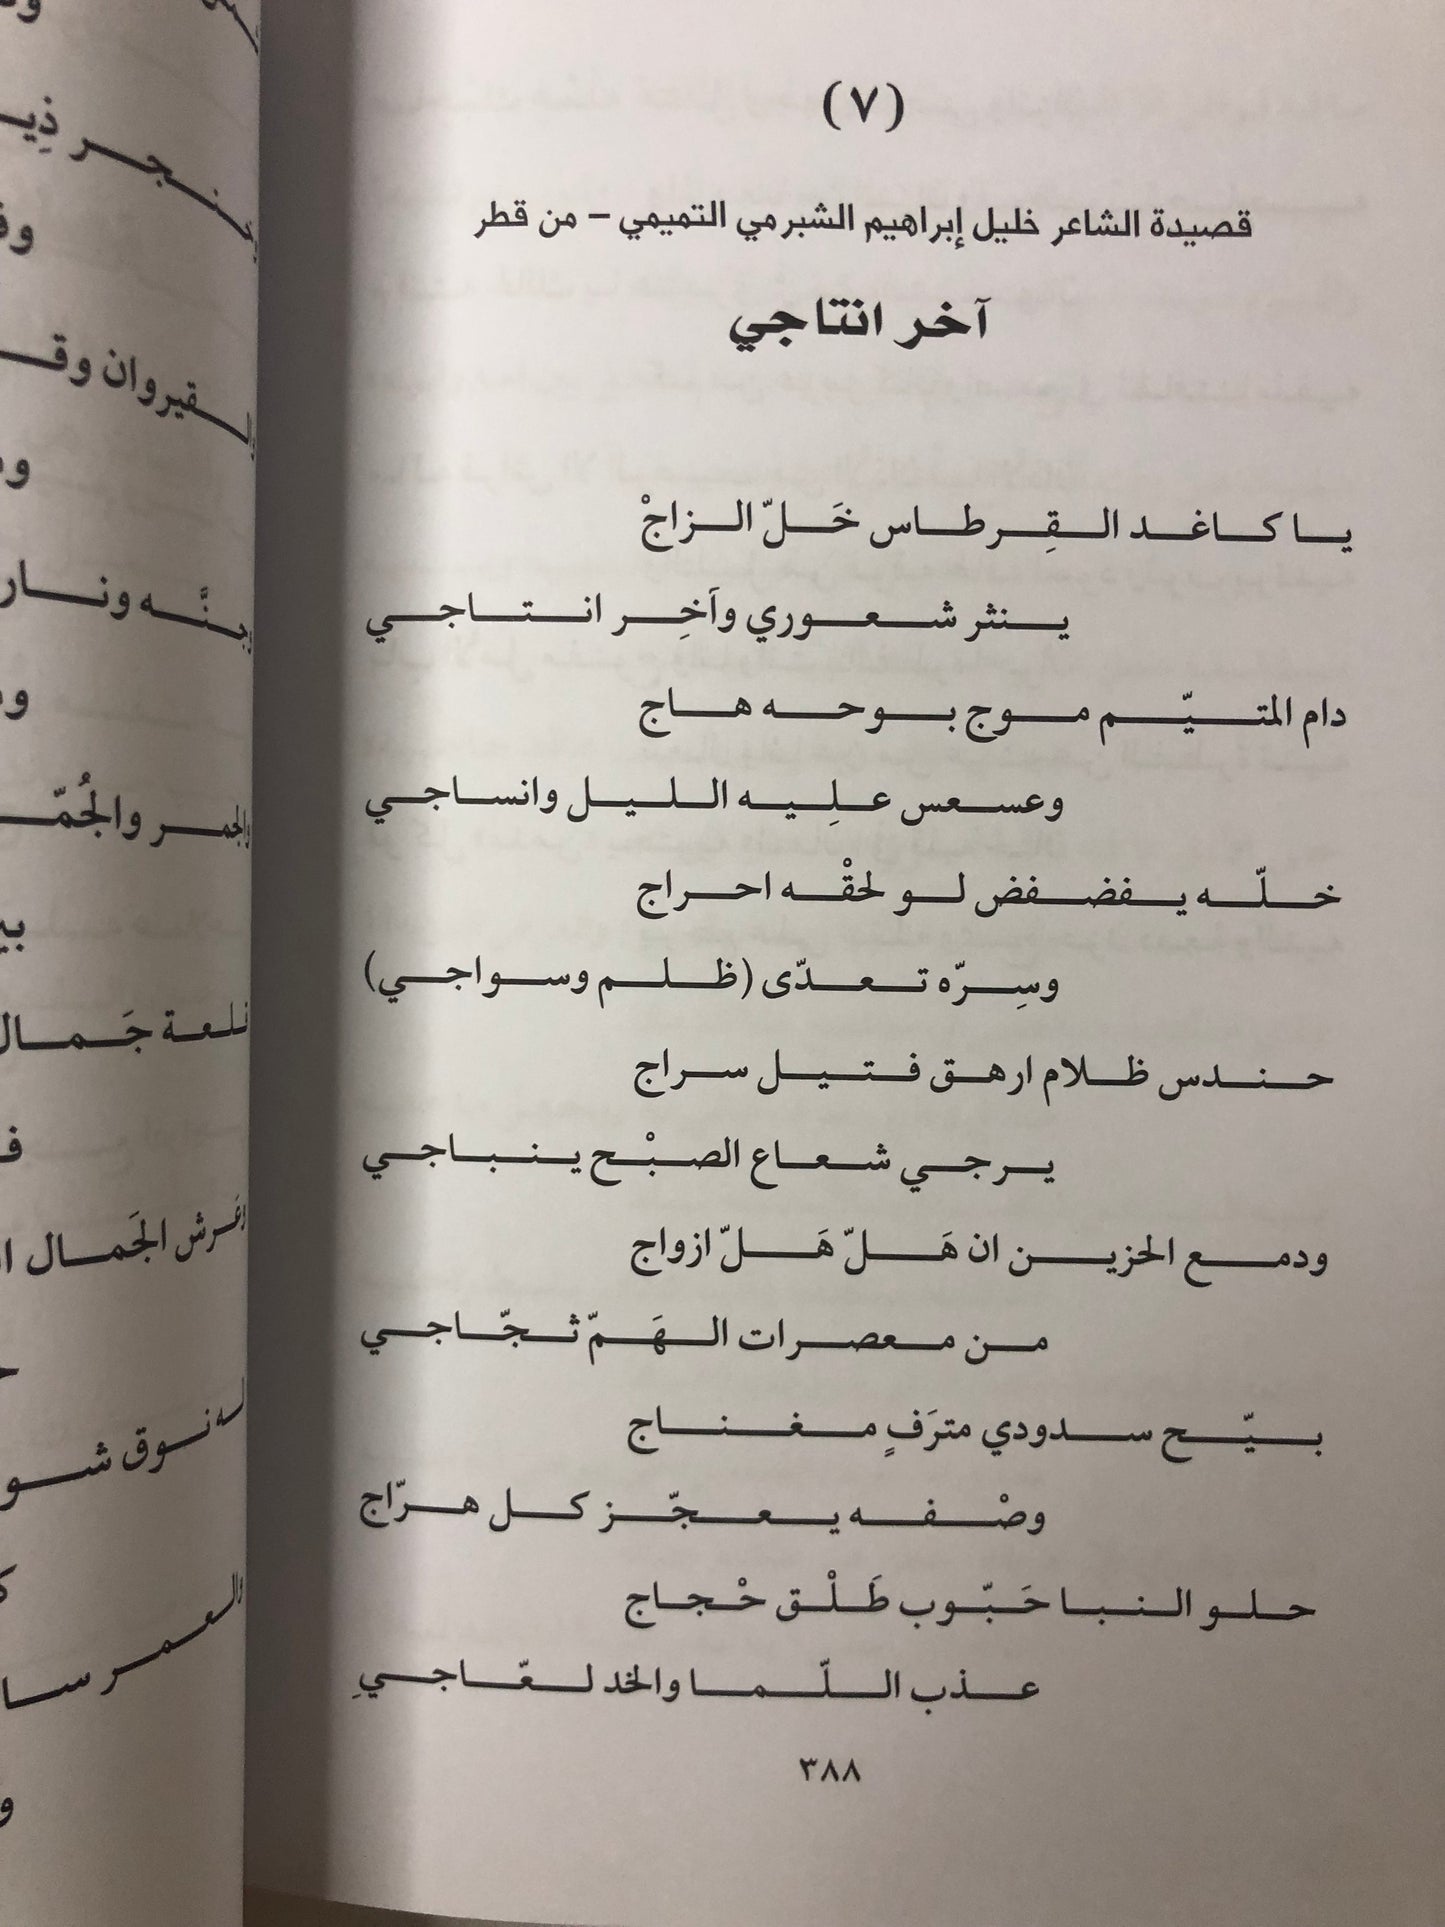 (٧)
قصيدة الشاعر خليل إبراهيم الشبرمي التميمي – من قطر
آخر انتاجي
يا كاغد القِرطاس خَلّ الزاجْ
ينثر شعوري وآخِر انتاجي
دام المتيّم موج بوحه هاج
وعسعس علِيه الليل وانساجي
خلّه يفضفض لو لحقْه احراج
وسِرّه تعدّى (ظلم وسواجي)
حندس ظلام ارهق فتيل سراج
يرجي شعاع الصبْح ينباجي
ودمع الحزين ان هَلّ هَلّ ازواج
من معصرات الهَمّ ثجّاجي
بيّح سدودي مترَفٍ مغناج
وصْفه يعجّز كل هرّاج
حلو النبا حَبّوب طَلْق حْجاج
عذب اللّما والخد لعّاجيِ
٣٨٨
خنجر ذِيـ
القيروان وقـ
جنَّه ونار
والجمر والجُمّـ
تلعة جَمال
وعَرش الجَمال ا
له نوق شو
والعمر سا